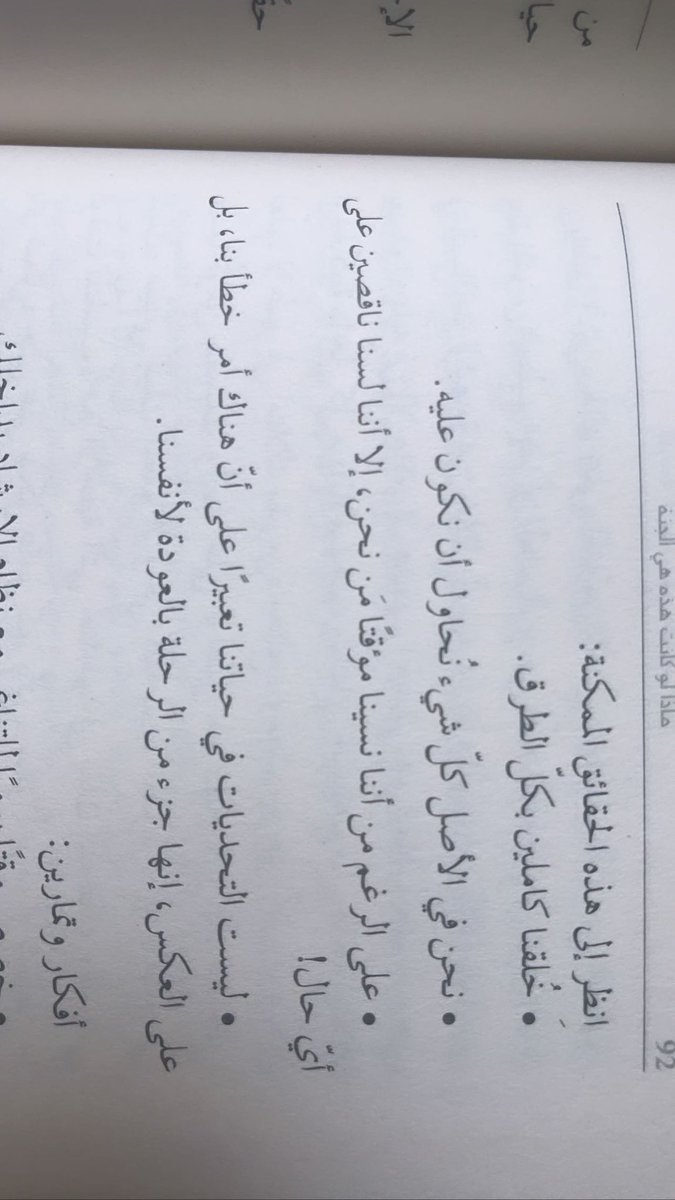 92
ماذا لو كانت هذه هي الجنة
انظر إلى هذه الحقائق الممكنة:
• خُلقنا كاملين بكلّ الطرق.
• نحن في الأصل كلّ شيء نُحاول أن نكون عليه.
• على الرغم من أننا نسينا مؤقتًا مَن نحن، إلا أننا لسنا ناقصين على
أيّ حال!
• ليست التحديات في حياتنا تعبيرًا على أنّ هناك أمر خطأ بنا، بل
على العكس، إنها جزء من الرحلة بالعودة لأنفسنا.
أفكار وتمارين:
من
حيا